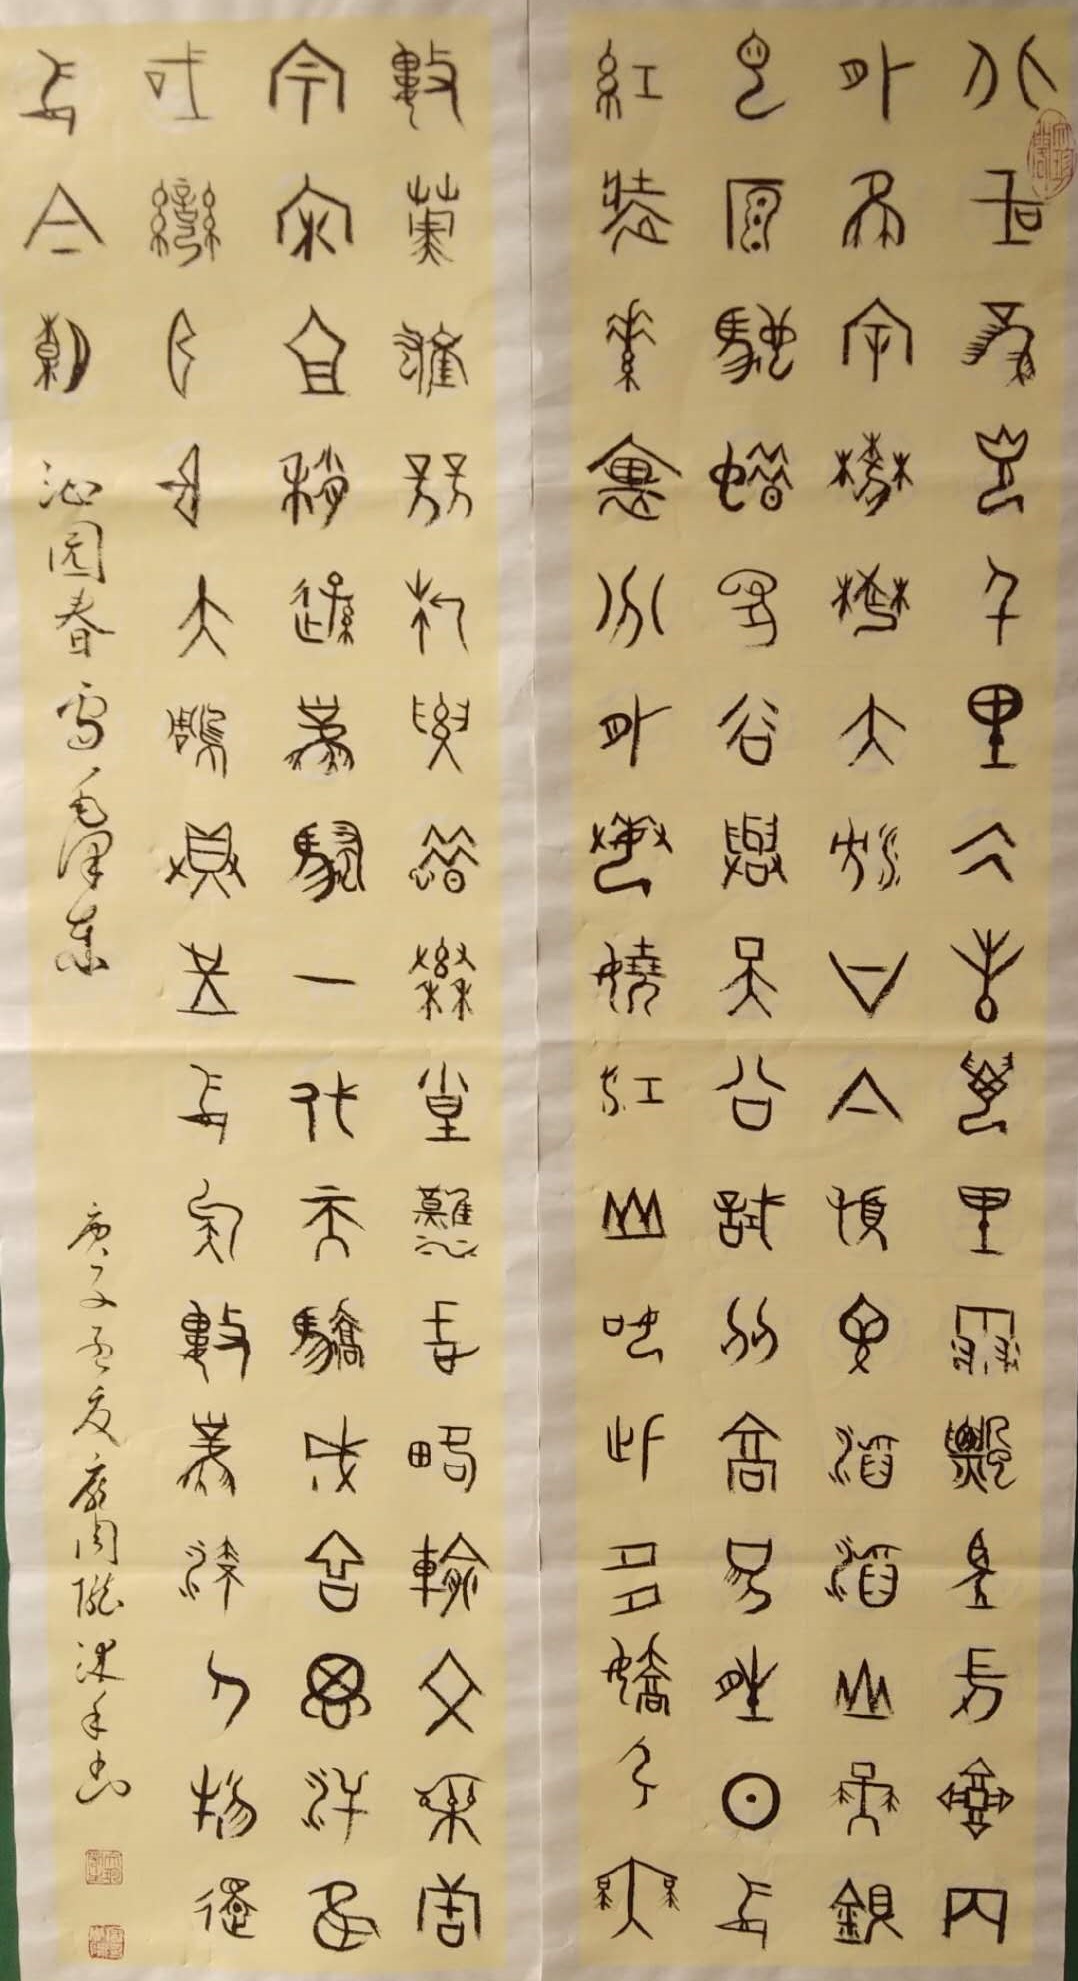 北国风光千里冰封万里雪飘望长城内
外惟余莽莽大河上下顿失滔滔山舞银
蛇原驰蜡象欲与天公试比高须晴日看
红装素裹分外妖娆江山如此多娇引无
数英雄竞折腰惜秦皇汉武略输文采唐
宗宋祖稍逊风骚一代天骄成吉思汗只
识弯弓射大雕俱往矣数风流人物还
看今朝 沁园春雪毛泽东
庚子孟夏